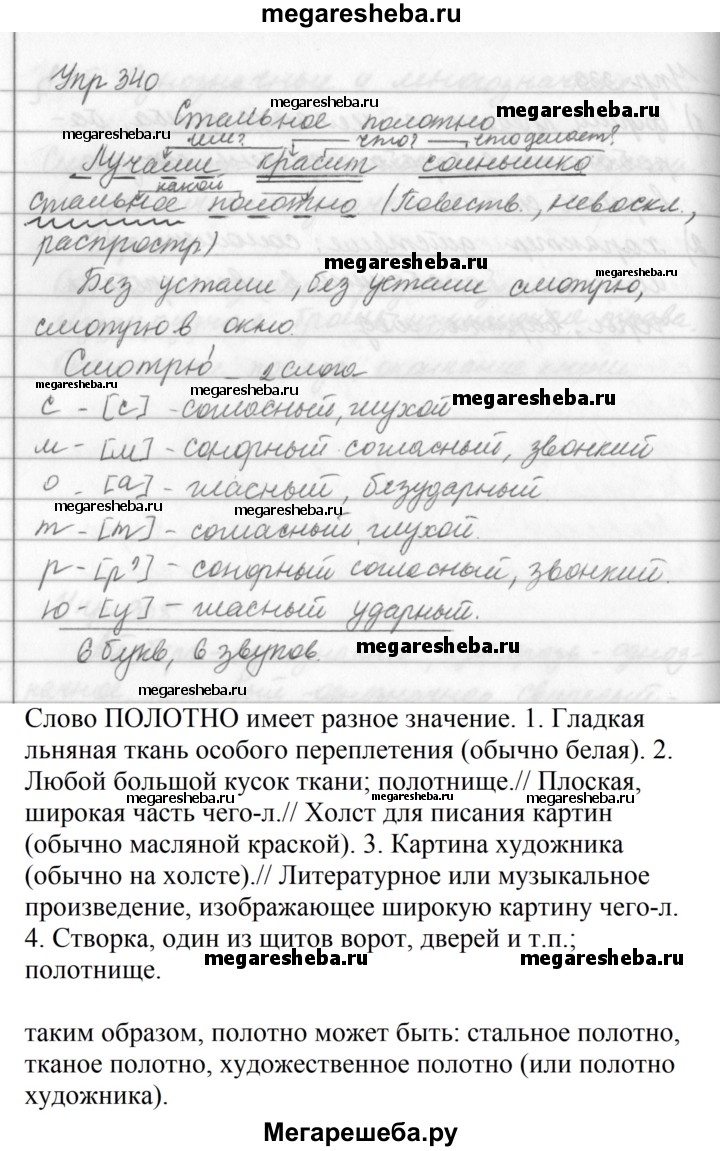 megaresheba.ru
Упр 340
megaresheba.ru
Стальное полотно
megaresheba.ru
чем? что? что делает?
Лучами красит солнышко
какой
стальное полотно (Повеств., невоскл.,
распростр)
megaresheba.ru
Без устали, без устали смотрю,
megaresheba.ru
смотрю в окно.
Смотрю - 2 слога
megaresheba.ru
megaresheba.ru
megaresheba.ru
с - [с] - согласный, глухой
м - [м] - сонорный согласный, звонкий
о - [а] - гласный, безударный
megaresheba.ru
megaresheba.ru
т - [т] - согласный, глухой.
р - [р'] - сонорный согласный, звонкий.
ю - [у] - гласный ударный.
6 букв, 6 звуков.
megaresheba.ru
megaresheba.ru
Слово ПОЛОТНО имеет разное значение. 1. Гладкая
льняная ткань особого переплетения (обычно белая). 2.
Любой большой кусок ткани; полотнище.// Плоская,
megaresheba.ru
megaresheba.ru
megaresheba.ru
широкая часть чего-л.// Холст для писания картин
(обычно масляной краской). 3. Картина художника
(обычно на холсте).// Литературное или музыкальное
произведение, изображающее широкую картину чего-л.
4. Створка, один из щитов ворот, дверей и т.п.;
полотнище.
megaresheba.ru
megaresheba.ru
таким образом, полотно может быть: стальное полотно,
тканое полотно, художественное полотно (или полотно
художника).
Мегарешеба.ру